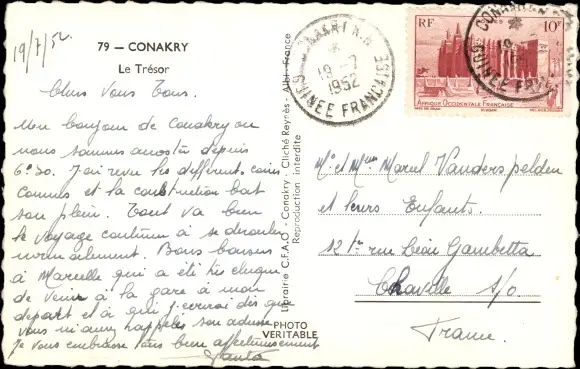 19/7/52.
79 — CONAKRY
Le Trésor
Chers Vous Tous.
Mon bonjour de Conakry où
nous sommes accostés depuis
6h30. J'ai revu les différents coins
connus et la construction bat
son plein. Tout va bien
le voyage continue à se dérouler
normalement. Bons baisers
à Marcelle qui a été très
de venir à la gare à mon
départ et à qui j'écrirai dès que
vous m'aurez son adresse
Je vous embrasse tous bien affectueusement
Librairie C.F.A.O - Conakry - Cliché Reynès - Albi - France
Reproduction interdite
PHOTO
VERITABLE
CONAKRY R.P.
19 - 7
1952
GUINÉE FRANÇAISE
RF
10F
AFRIQUE OCCIDENTALE FRANÇAISE
CONAKRY
19
GUINÉE FR
Mr et Mme Marcel Vanderspelden
et leurs Enfants.
12 ter rue Léon Gambetta
Chaville S/O.
France.